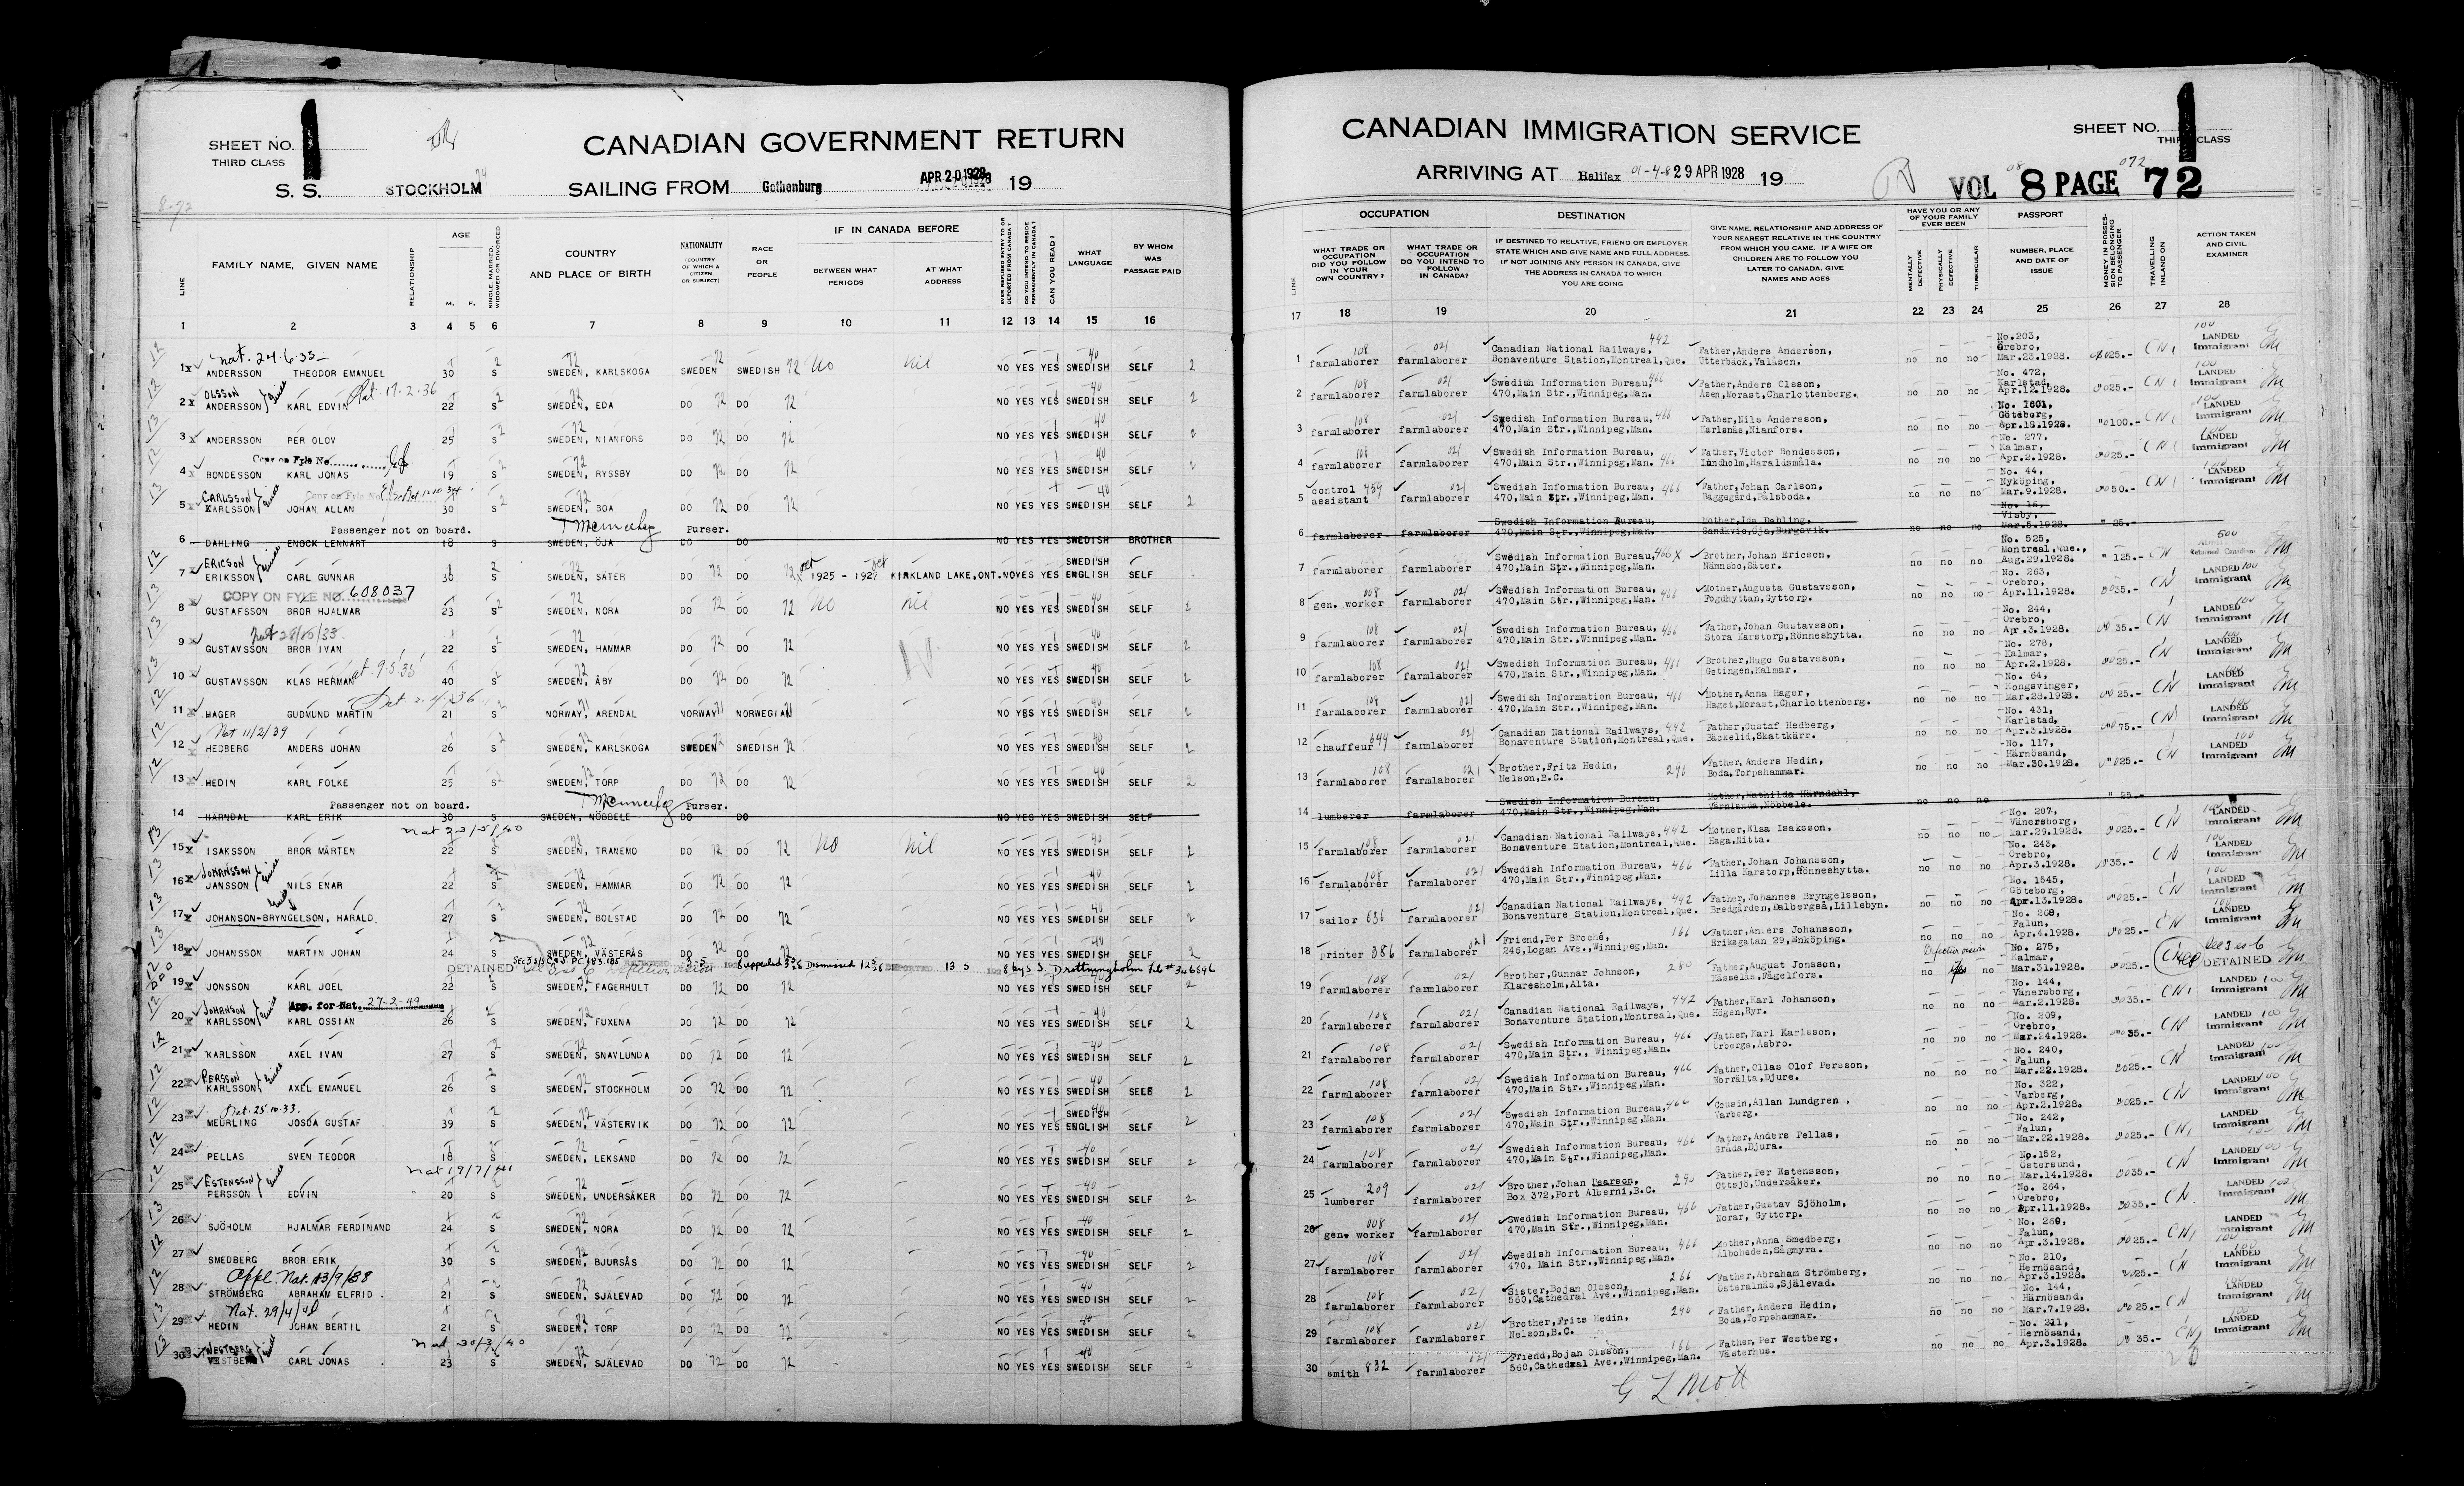 SHEET NO. 1
THIRD CLASS
CANADIAN GOVERNMENT RETURN
S. S. STOCKHOLM SAILING FROM Gothenburg APR 20 1928 19
8-72
LINE FAMILY NAME, GIVEN NAME RELATIONSHIP AGE M. F. SINGLE, MARRIED, WIDOWED OR DIVORCED COUNTRY AND PLACE OF BIRTH NATIONALITY (COUNTRY OF WHICH A CITIZEN OR SUBJECT) RACE OR PEOPLE IF IN CANADA BEFORE BETWEEN WHAT PERIODS AT WHAT ADDRESS EVER REFUSED ENTRY TO OR DEPORTED FROM CANADA? DO YOU INTEND TO RESIDE PERMANENTLY IN CANADA? CAN YOU READ? WHAT LANGUAGE BY WHOM WAS PASSAGE PAID
1 2 3 4 5 6 7 8 9 10 11 12 13 14 15 16
nat. 24.6.33
1 ANDERSSON THEODOR EMANUEL 30 S SWEDEN, KARLSKOGA SWEDEN SWEDISH 72 No nil NO YES YES SWEDISH SELF 2
OLSSON nat. 17.2.36
2 ANDERSSON KARL EDVIN 22 S SWEDEN, EDA DO 72 DO 72 NO YES YES SWEDISH SELF 2
3 ANDERSSON PER OLOV 25 S SWEDEN, NIANFORS DO 72 DO 72 NO YES YES SWEDISH SELF 2
Copy on Fyle No.
4 BONDESSON KARL JONAS 19 S SWEDEN, RYSSBY DO 72 DO 72 NO YES YES SWEDISH SELF 2
CARLSSON Copy on Fyle No
5 KARLSSON JOHAN ALLAN 30 S SWEDEN, BOA DO 72 DO 72 NO YES YES SWEDISH SELF 2
Passenger not on board. Purser.
6 DAHLING ENOCK LENNART 18 S SWEDEN, ÖJA DO DO NO YES YES SWEDISH BROTHER
ERICSON SWEDISH
7 ERIKSSON CARL GUNNAR 30 S SWEDEN, SÄTER DO 72 DO 72 oct 1925 - oct 1927 KIRKLAND LAKE, ONT. NO YES YES ENGLISH SELF
COPY ON FYLE NO. 608037
8 GUSTAFSSON BROR HJALMAR 23 S SWEDEN, NORA DO 72 DO 72 No nil NO YES YES SWEDISH SELF 2
9 GUSTAVSSON BROR IVAN 22 S SWEDEN, HAMMAR DO 72 DO 72 NO YES YES SWEDISH SELF 2
nat. 9.5.35
10 GUSTAVSSON KLAS HERMAN 40 S SWEDEN, ÅBY DO 72 DO 72 NO YES YES SWEDISH SELF 2
11 HAGER GUDMUND MARTIN 21 S NORWAY, ARENDAL NORWAY NORWEGIAN NO YES YES SWEDISH SELF 2
Nat 11/2/39
12 HEDBERG ANDERS JOHAN 26 S SWEDEN, KARLSKOGA SWEDEN SWEDISH 72 NO YES YES SWEDISH SELF 2
13 HEDIN KARL FOLKE 25 S SWEDEN, TORP DO 72 DO 72 NO YES YES SWEDISH SELF 2
Passenger not on board. Purser.
14 HÄRNDAL KARL ERIK 30 S SWEDEN, NÖBBELE DO DO NO YES YES SWEDISH SELF
nat 23/5/40
15 ISAKSSON BROR MÄRTEN 22 S SWEDEN, TRANEMO DO 72 DO 72 No nil NO YES YES SWEDISH SELF 2
JOHANSSON
16 JANSSON NILS ENAR 22 S SWEDEN, HAMMAR DO 72 DO 72 NO YES YES SWEDISH SELF 2
17 JOHANSON-BRYNGELSON, HARALD. 27 S SWEDEN, BOLSTAD DO 72 DO 72 NO YES YES SWEDISH SELF 2
18 JOHANSSON MARTIN JOHAN 24 S SWEDEN, VÄSTERÅS DO 72 DO 72 NO YES YES SWEDISH SELF 2
DETAINED Dismissed DEPORTED 13 5 1928 by s S Drottningholm
19 JONSSON KARL JOEL 22 S SWEDEN, FAGERHULT DO 72 DO 72 NO YES YES SWEDISH SELF 2
JOHANSON App. for Nat. 27-2-49
20 KARLSSON KARL OSSIAN 26 S SWEDEN, FUXENA DO 72 DO 72 NO YES YES SWEDISH SELF 2
21 KARLSSON AXEL IVAN 27 S SWEDEN, SNAVLUNDA DO 72 DO 72 NO YES YES SWEDISH SELF 2
PERSSON
22 KARLSSON AXEL EMANUEL 26 S SWEDEN, STOCKHOLM DO 72 DO 72 NO YES YES SWEDISH SELF 2
nat. 25.10.33. SWEDISH
23 MEURLING JOSUA GUSTAF 39 S SWEDEN, VÄSTERVIK DO 72 DO 72 NO YES YES ENGLISH SELF 2
24 PELLAS SVEN TEODOR 18 S SWEDEN, LEKSAND DO 72 DO 72 NO YES YES SWEDISH SELF 2
ESTENSSON nat 19/7/41
25 PERSSON EDVIN 20 S SWEDEN, UNDERSÅKER DO 72 DO 72 NO YES YES SWEDISH SELF 2
26 SJÖHOLM HJALMAR FERDINAND 24 S SWEDEN, NORA DO 72 DO 72 NO YES YES SWEDISH SELF 2
27 SMEDBERG BROR ERIK 30 S SWEDEN, BJURSÅS DO 72 DO 72 NO YES YES SWEDISH SELF 2
Appl. Nat. 13/9/38
28 STRÖMBERG ABRAHAM ELFRID 21 S SWEDEN, SJÄLEVAD DO 72 DO 72 NO YES YES SWEDISH SELF 2
Nat. 29/4/
29 HEDIN JOHAN BERTIL 21 S SWEDEN, TORP DO 72 DO 72 NO YES YES SWEDISH SELF 2
WESTBERG nat 30/3/40
30 VESTBERG CARL JONAS 23 S SWEDEN, SJÄLEVAD DO 72 DO 72 NO YES YES SWEDISH SELF 2
CANADIAN IMMIGRATION SERVICE
SHEET NO. 1
THIRD CLASS
ARRIVING AT Halifax 01-4-8 29 APR 1928 19 VOL 8 PAGE 72
LINE OCCUPATION WHAT TRADE OR OCCUPATION DID YOU FOLLOW IN YOUR OWN COUNTRY? WHAT TRADE OR OCCUPATION DO YOU INTEND TO FOLLOW IN CANADA? DESTINATION IF DESTINED TO RELATIVE, FRIEND OR EMPLOYER STATE WHICH AND GIVE NAME AND FULL ADDRESS. IF NOT JOINING ANY PERSON IN CANADA, GIVE THE ADDRESS IN CANADA TO WHICH YOU ARE GOING GIVE NAME, RELATIONSHIP AND ADDRESS OF YOUR NEAREST RELATIVE IN THE COUNTRY FROM WHICH YOU CAME. IF A WIFE OR CHILDREN ARE TO FOLLOW YOU LATER TO CANADA, GIVE NAMES AND AGES HAVE YOU OR ANY OF YOUR FAMILY EVER BEEN MENTALLY DEFECTIVE PHYSICALLY DEFECTIVE TUBERCULAR PASSPORT NUMBER, PLACE AND DATE OF ISSUE MONEY IN POSSESSION BELONGING TO PASSENGER TRAVELLING INLAND ON ACTION TAKEN AND CIVIL EXAMINER
17 18 19 20 21 22 23 24 25 26 27 28
1 farmlaborer farmlaborer Canadian National Railways, Bonaventure Station,Montreal,Que. 442 Father,Anders Anderson, Utterbäck,Valåsen. no no no No.203, Örebro, Mar.23.1928. 25.- CN LANDED Immigrant
2 farmlaborer farmlaborer Swedish Information Bureau, 470,Main Str.,Winnipeg,Man. 466 Father,Anders Olsson, Åsen,Morast,Charlottenberg. no no no No. 472, Karlstad, Apr.12.1928. 25.- CN LANDED Immigrant
3 farmlaborer farmlaborer Swedish Information Bureau, 470,Main Str.,Winnipeg,Man. 466 Father,Nils Andersson, Karlsnäs,Nianfors. no no no No. 1601, Göteborg, Apr.18.1928. 100.- CN LANDED Immigrant
4 farmlaborer farmlaborer Swedish Information Bureau, 470,Main Str.,Winnipeg,Man. 466 Father,Victor Bondesson, Lindholm,Haraldsmåla. no no no No. 277, Kalmar, Apr.2.1928. 25.- CN LANDED Immigrant
5 control assistant 459 farmlaborer Swedish Information Bureau, 470,Main Str.,Winnipeg,Man. 466 Father,Johan Carlson, Baggegård,Pålsboda. no no no No. 44, Nyköping, Mar.9.1928. 50.- CN LANDED Immigrant
6 farmlaborer farmlaborer Swedish Information Bureau, 470,Main Str.,Winnipeg,Man. Mother,Ida Dahling, Sandkvie,Öja,Burgsvik. no no no No. 16, Visby, Mar.5.1928. " 25.-
7 farmlaborer farmlaborer Swedish Information Bureau, 470,Main Str.,Winnipeg,Man. 466 X Brother,Johan Ericson, Nämnsbo,Säter. no no no No. 525, Montreal,Que., Aug.29.1928. " 125.- CN 500 Returned Canadian
8 gen. worker farmlaborer Swedish Information Bureau, 470,Main Str.,Winnipeg,Man. 466 Mother,Augusta Gustavsson, Fogdhyttan,Gyttorp. no no no No. 263, Örebro, Apr.11.1928. 35.- CN LANDED Immigrant
9 farmlaborer farmlaborer Swedish Information Bureau, 470,Main Str.,Winnipeg,Man. 466 Father,Johan Gustavsson, Stora Karstorp,Rönneshytta. no no no No. 244, Örebro, Apr.3.1928. 35.- CN LANDED Immigrant
10 farmlaborer farmlaborer Swedish Information Bureau, 470,Main Str.,Winnipeg,Man. 466 Brother,Hugo Gustavsson, Getingen,Kalmar. no no no No. 278, Kalmar, Apr.2.1928. 25.- CN LANDED Immigrant
11 farmlaborer farmlaborer Swedish Information Bureau, 470,Main Str.,Winnipeg,Man. 466 Mother,Anna Hager, Haget,Morast,Charlottenberg. no no no No. 64, Kongsvinger, Mar.28.1928. 25.- CN LANDED Immigrant
12 chauffeur 644 farmlaborer Canadian National Railways, Bonaventure Station,Montreal,Que. 442 Father,Gustaf Hedberg, Bäckelid,Skattkärr. no no no No. 431, Karlstad, Apr.3.1928. 75.- CN LANDED Immigrant
13 farmlaborer farmlaborer Brother,Fritz Hedin, Nelson,B.C. 290 Father,Anders Hedin, Boda,Torpshammar. no no no No. 117, Härnösand, Mar.30.1928. 25.- CN LANDED Immigrant
14 lumberer farmlaborer Swedish Information Bureau, 470,Main Str.,Winnipeg,Man. Mother,Mathilda Härndahl, Värnlanda,Nöbbele. no no no " 25.-
15 farmlaborer farmlaborer Canadian National Railways, Bonaventure Station,Montreal,Que. 442 Mother,Elsa Isaksson, Haga,Nitta. no no no No. 207, Vänersborg, Mar.29.1928. 25.- CN LANDED Immigrant
16 farmlaborer farmlaborer Swedish Information Bureau, 470,Main Str.,Winnipeg,Man. 466 Father,Johan Johansson, Lilla Karstorp,Rönneshytta. no no no No. 243, Örebro, Apr.3.1928. 35.- CN LANDED Immigrant
17 sailor 636 farmlaborer Canadian National Railways, Bonaventure Station,Montreal,Que. 442 Father,Johannes Bryngelsson, Bredgården,Dalbergså,Lillebyn. no no no No. 1545, Göteborg, Apr.13.1928. 25.- CN LANDED Immigrant
18 printer 386 farmlaborer Friend,Per Broché, 246,Logan Ave.,Winnipeg,Man. 166 Father,Anders Johansson, Eriksgatan 29,Enköping. no no no No. 268, Falun, Apr.4.1928. 25.- CN LANDED Immigrant
19 farmlaborer farmlaborer Brother,Gunnar Johnson, Klaresholm,Alta. 280 Father,August Jonsson, Hässelås,Fågelfors. no Yes no Defective vision No. 275, Kalmar, Mar.31.1928. 25.- DETAINED
20 farmlaborer farmlaborer Canadian National Railways, Bonaventure Station,Montreal,Que. 442 Father,Karl Johanson, Högen,Ryr. no no no No. 144, Vänersborg, Mar.2.1928. 35.- CN LANDED Immigrant
21 farmlaborer farmlaborer Swedish Information Bureau, 470,Main Str., Winnipeg,Man. 466 Father,Karl Karlsson, Orberga,Åsbro. no no no No. 209, Örebro, Mar.24.1928. 35.- CN LANDED Immigrant
22 farmlaborer farmlaborer Swedish Information Bureau, 470,Main Str.,Winnipeg,Man. 466 Father,Ollas Olof Persson, Norrälta,Djure. no no no No. 240, Falun, Mar.22.1928. 25.- CN LANDED Immigrant
23 farmlaborer farmlaborer Swedish Information Bureau, 470,Main Str.,Winnipeg,Man. 466 Cousin,Allan Lundgren, Varberg. no no no No. 322, Varberg, Apr.2.1928. 25.- CN LANDED Immigrant
24 farmlaborer farmlaborer Swedish Information Bureau, 470,Main Str.,Winnipeg,Man. 466 Father,Anders Pellas, Gråda,Djura. no no no No. 242, Falun, Mar.22.1928. 25.- CN LANDED Immigrant
25 lumberer 209 farmlaborer Brother,Johan Pearson, Box 372,Port Alberni,B.C. 290 Father,Per Estensson, Ottsjö,Undersåker. no no no No.152, Östersund, Mar.14.1928. 35.- CN LANDED Immigrant
26 gen. worker farmlaborer Swedish Information Bureau, 470,Main Str.,Winnipeg,Man. 466 Father,Gustav Sjöholm, Norar, Gyttorp. no no no No. 264, Örebro, Apr.11.1928. 35.- CN LANDED Immigrant
27 farmlaborer farmlaborer Swedish Information Bureau, 470, Main Str.,Winnipeg,Man. 466 Mother,Anna Smedberg, Alboheden,Sågmyra. no no no No. 269, Falun, Apr.3.1928. 25.- CN LANDED Immigrant
28 farmlaborer farmlaborer Sister,Bojan Olsson, 560,Cathedral Ave.,Winnipeg,Man. 266 Father,Abraham Strömberg, Österalnäs,Själevad. no no no No. 210, Hernösand, Apr.3.1928. 25.- CN LANDED Immigrant
29 farmlaborer farmlaborer Brother,Frits Hedin, Nelson,B.C. 290 Father,Anders Hedin, Boda,Torpshammar. no no no No. 144, Härnösand, Mar.7.1928. 25.- CN LANDED Immigrant
30 smith 832 farmlaborer Friend,Bojan Olsson, 560,Cathedral Ave.,Winnipeg,Man. 166 Father,Per Westberg, Västerhus. no no no No. 211, Hernösand, Apr.3.1928. 35.- CN LANDED Immigrant
G L Mott